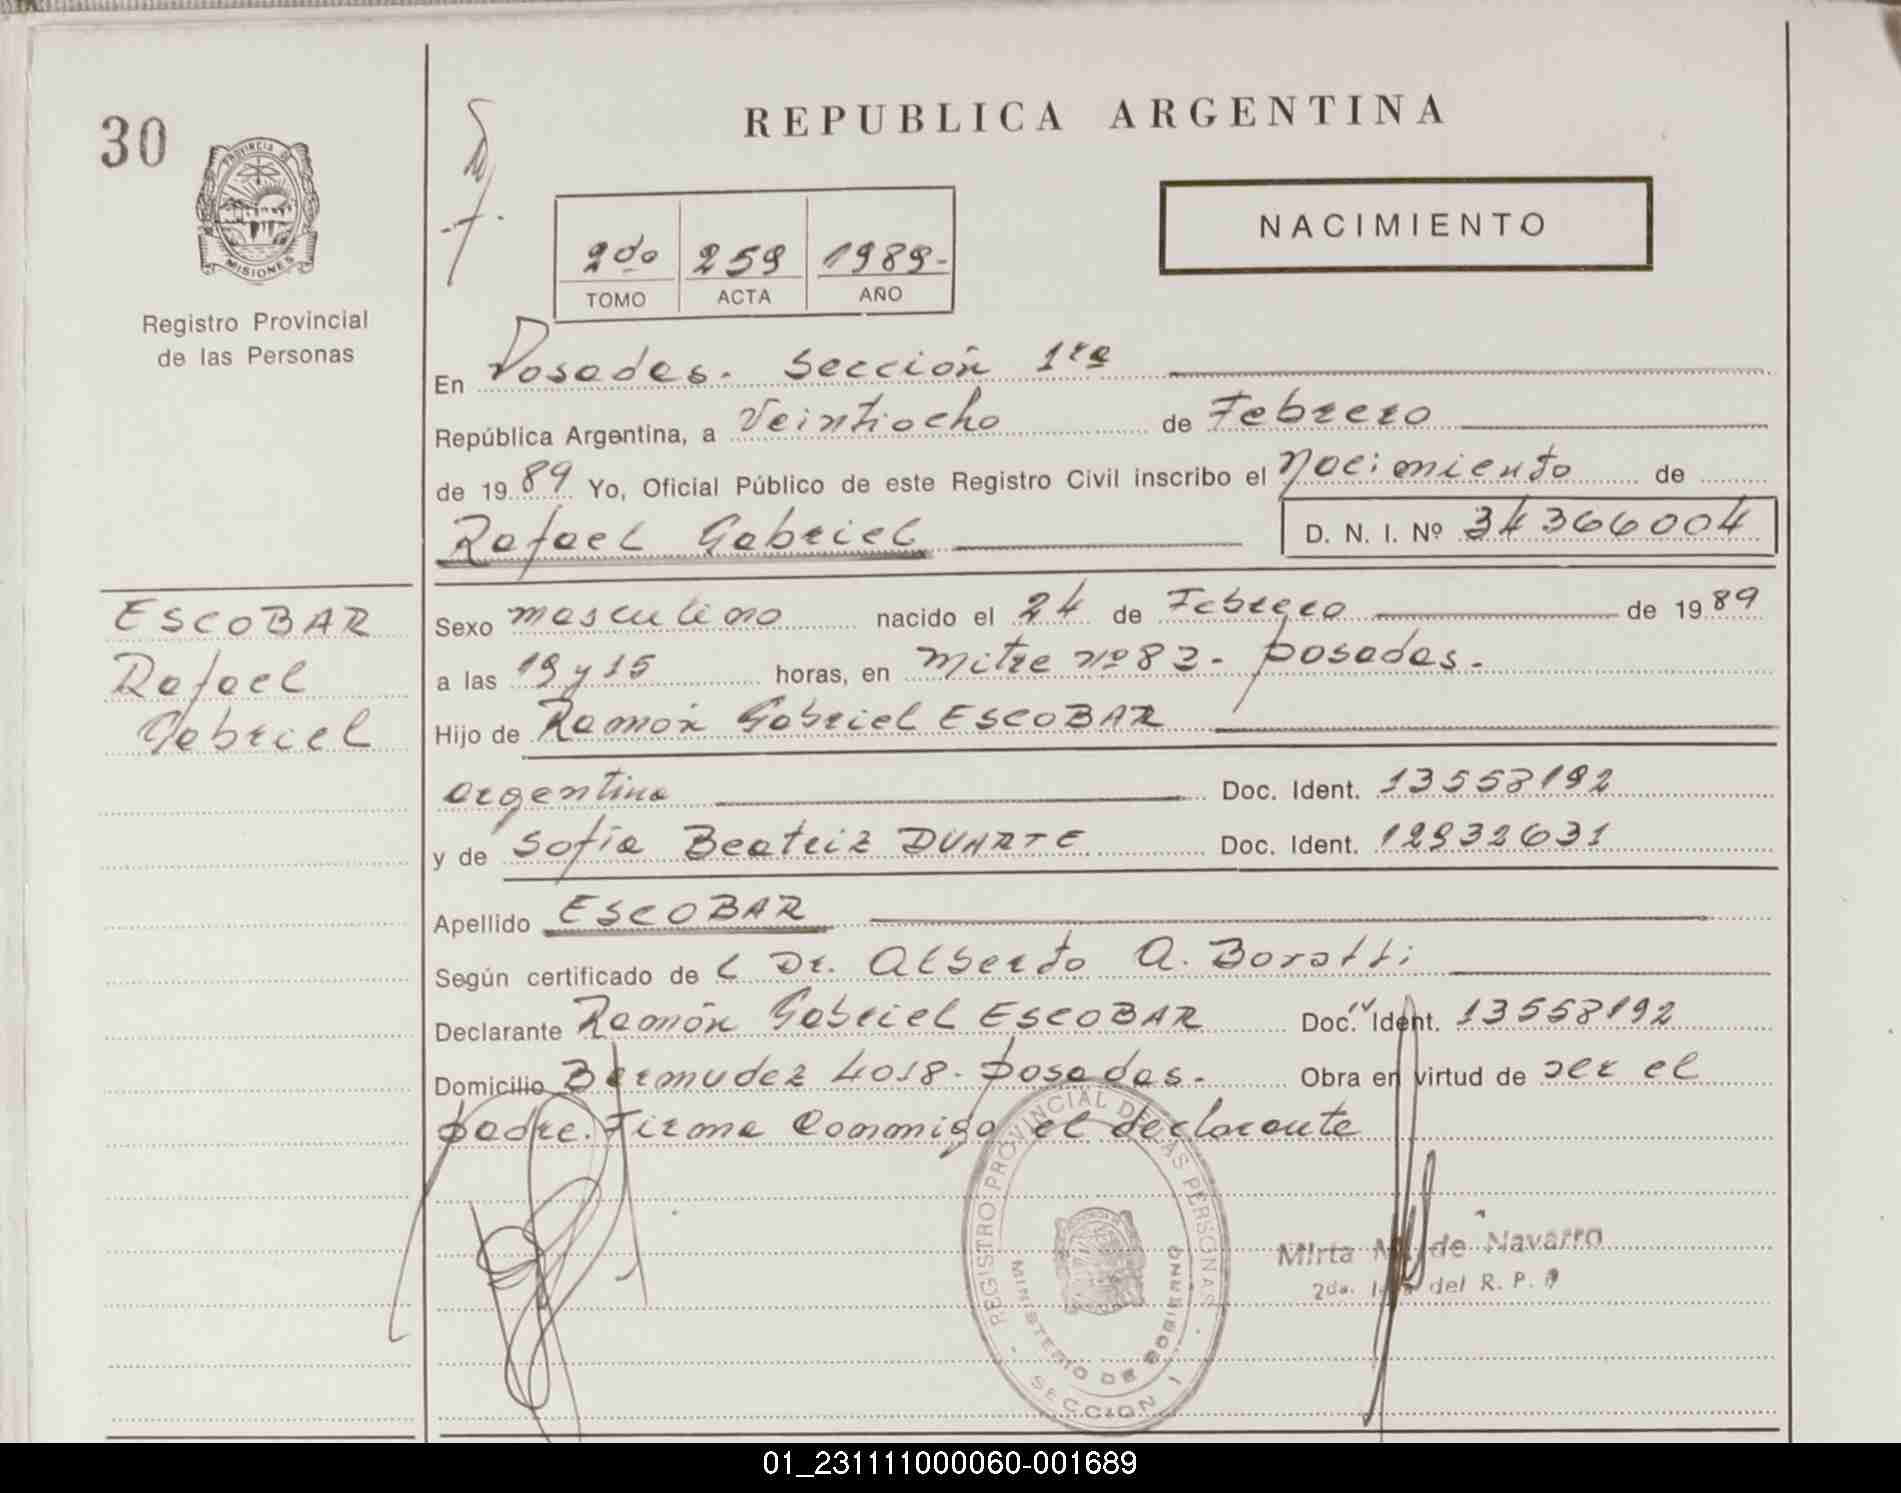 30
PROVINCIA DE
MISIONES
Registro Provincial
de las Personas
REPUBLICA ARGENTINA
NACIMIENTO
2do 259 1989-
TOMO ACTA AÑO
En Posadas. Sección 1ra
República Argentina, a Veintiocho de Febrero
de 1989 Yo, Oficial Público de este Registro Civil inscribo el Nacimiento de
Rafael Gabriel D. N. I. Nº 34366004
ESCOBAR
Rafael
Gabriel
Sexo masculino nacido el 24 de Febrero de 1989
a las 19 y 15 horas, en Mitre nº 82- posadas.
Hijo de Ramón Gabriel ESCOBAR
argentino Doc. Ident. 13558192
y de Sofía Beatriz DUARTE Doc. Ident. 12932631
Apellido ESCOBAR
Según certificado de L Dr. Alberto A. Boratti
Declarante Ramón Gabriel ESCOBAR Doc. Ident. 13558192
Domicilio Bermudez 4018- posadas. Obra en virtud de ser el
padre. Firma Conmigo el declarante
REGISTRO PROVINCIAL DE LAS PERSONAS
MINISTERIO DE GOBIERNO
SECCION 1
Mirta M. de Navarro
2da. del R. P.
01_231111000060-001689